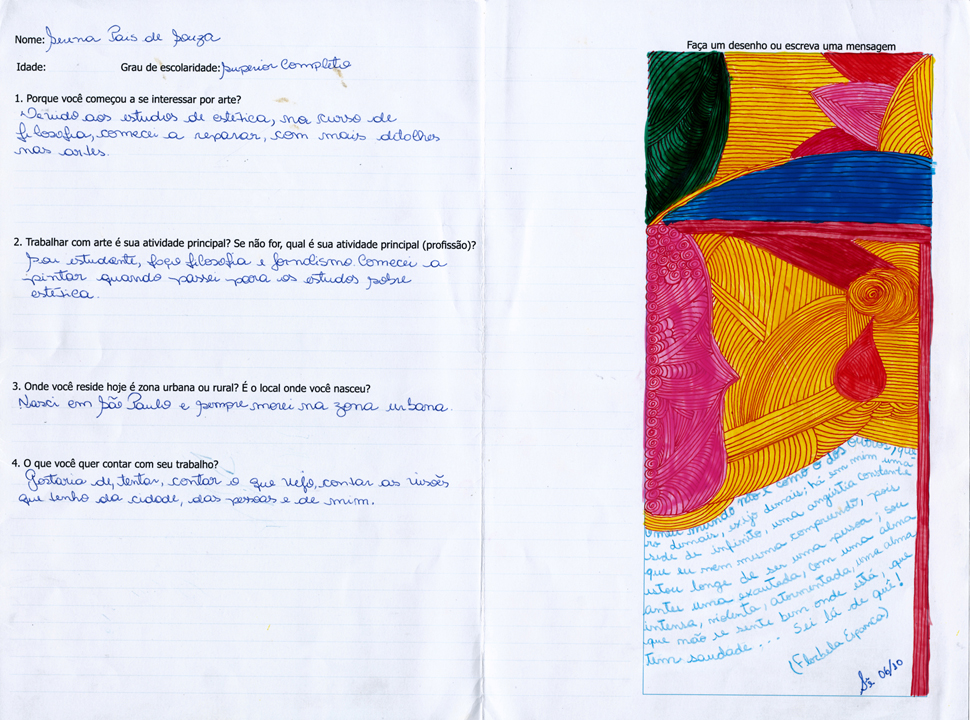 Nome: Pais de Souza
Idade:
Grau de escolaridade: Superior Completo
1. Porque você começou a se interessar por arte?
Devido aos estudos de estética, no curso de
filosofia, comecei a reparar, com mais olhos
nas artes.
2. Trabalhar com arte é sua atividade principal? Se não for, qual é sua atividade principal (profissão)?
Sou estudante, faço filosofia e jornalismo. Comecei a
pintar quando passei para os estudos sobre
estética.
3. Onde você reside hoje é zona urbana ou rural? É o local onde você nasceu?
Nasci em São Paulo e sempre morei na zona urbana.
4. O que você quer contar com seu trabalho?
Gostaria de, tentar, contar o que vejo, contar as visões
que tenho da cidade, das pessoas e de mim.
Faça um desenho ou escreva uma mensagem
O meu mundo não é como o dos outros, que-
ro demais, exijo demais; há em mim uma
sede de infinito, uma angústia constante
que eu nem mesma compreendo, pois
estou longe de ser uma pessoa; sou
antes uma exaltada, com uma alma
intensa, violenta, atormentada, uma alma
que não se sente bem onde está, que
tem saudade... Sei lá de quê!
(Florbela Espanca)
06/10